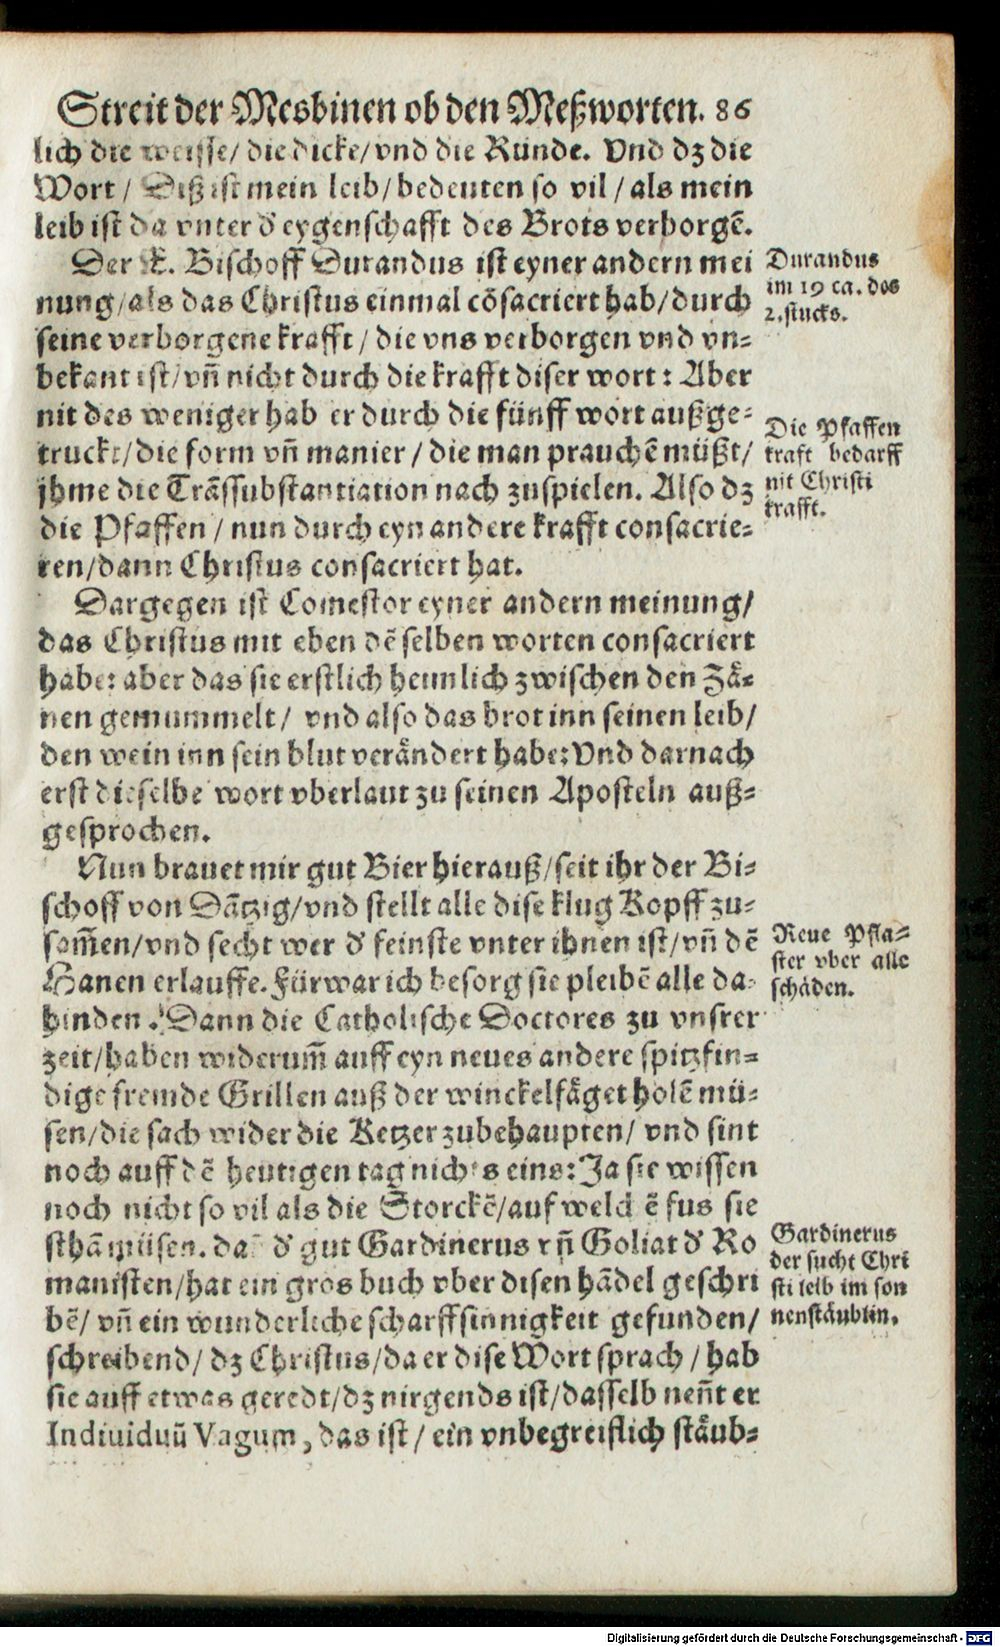 Streit der Mesbinen ob den Meßworten. 86
lich die weisse/ die dicke/ vnd die Ründe. Vnd dz die
Wort/ Diß ist mein leib/ bedeuten so vil/ als mein
leib ist da vnter d' eygenschafft des Brots verborgẽ.
Der E. Bischoff Durandus ist eyner andern mei
nung/ als das Christus einmal cõsacriert hab/ durch
seine verborgene krafft/ die vns verborgen vnd vn-
bekant ist/ vñ nicht durch die krafft diser wort: Aber
nit des weniger hab er durch die fünff wort außge-
truckt/ die form vñ manier/ die man prauchẽ müßt/
jhme die Trãssubstantiation nach zuspielen. Also dz
die Pfaffen/ nun durch eyn andere krafft consacrie-
ren/ dann Christus consacriert hat.
Durandus
im 19 ca. des
2. stucks.
Die Pfaffen
kraft bedarff
nit Christi
krafft.
Dargegen ist Comestor eyner andern meinung/
das Christus mit eben dẽselben worten consacriert
habe: aber das sie erstlich heimlich zwischen den Zä-
nen gemummelt/ vnd also das brot inn seinen leib/
den wein inn sein blut verändert habe: Vnd darnach
erst dieselbe wort vberlaut zu seinen Aposteln auß-
gesprochen.
Nun brauet mir gut Bier hierauß/ seit ihr der Bi-
schoff von Dãtzig/ vnd stellt alle dise klug Kopff zu-
sam̃en/ vnd secht wer d' feinste vnter ihnen ist/ vñ dẽ
Hanen erlauffe. Fürwar ich besorg sie pleibẽ alle da-
hinden. Dann die Catholische Doctores zu vnsrer
zeit/ haben widerum̃ auff eyn neues andere spitzfin-
dige fremde Grillen auß der winckelfäget holẽ mü-
sen/ die sach wider die Ketzer zubehaupten/ vnd sint
noch auff dẽ heutigen tag nichts eins: Ja sie wissen
noch nicht so vil als die Storckẽ/ auf welchẽ fus sie
sthã müsen. dañ d' gut Gardinerus vñ Goliat d' Ro
manisten/ hat ein gros buch vber disen hãdel geschri
bẽ/ vñ ein wunderliche scharffsinnigkeit gefunden/
schreibend/ dz Christus/ da er dise Wort sprach/ hab
sie auff etwas geredt/ dz nirgends ist/ dasselb neñt er
Indiuiduũ Vagum, das ist/ ein vnbegreiflich stäub-
Neue Pfla-
ster vber alle
schäden.
Gardinerus
der sucht Chri
sti leib im son
nenstäublin.
Digitalisierung gefördert durch die Deutsche Forschungsgemeinschaft - DFG